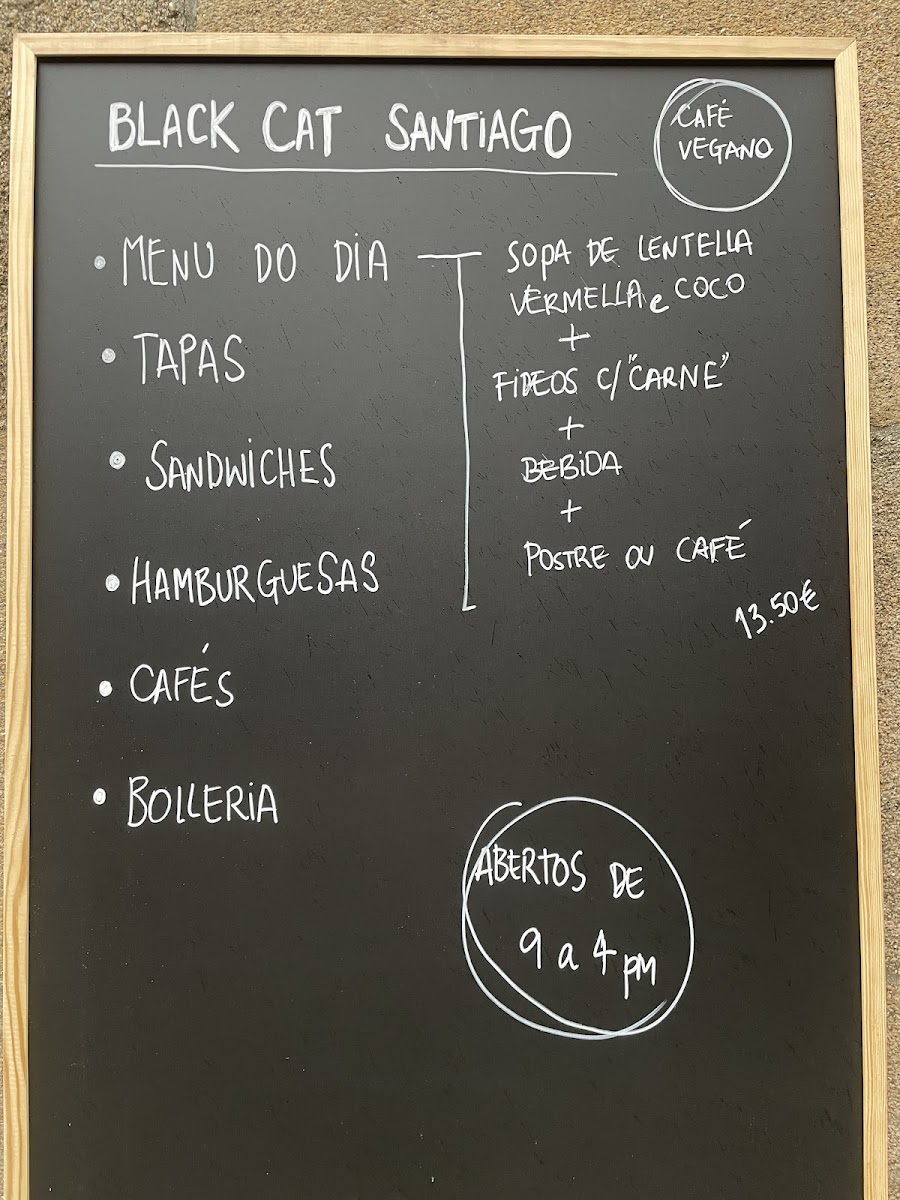 BLACK CAT SANTIAGO
CAFÉ
VEGANO
• MENU DO DIA
• TAPAS
• SANDWICHES
• HAMBURGUESAS
• CAFÉS
• BOLLERIA
SOPA DE LENTELLA
VERMELLA e COCO
+
FIDEOS C/"CARNE"
+
BEBIDA
+
POSTRE OU CAFÉ
13.50€
ABERTOS DE
9 a 4 pm